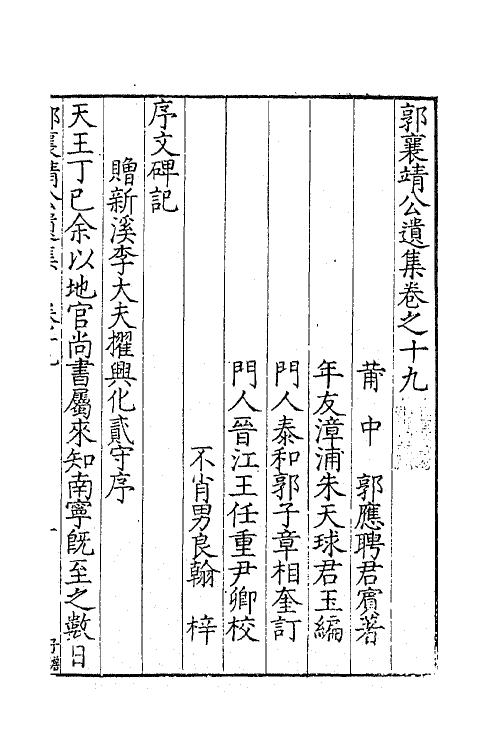 郭襄靖公遺集卷之十九
莆中郭應聘君賓著
年友漳浦朱天球君玉編
門人泰和郭子章相奎訂
門人晉江王任重尹卿校
不肖男良翰梓
序文碑記
贈新溪李大夫擢興化貳守序
天王丁巳余以地官尚書屬來知南寧旣至之數日
郭襄靖公遺集 卷十九 一